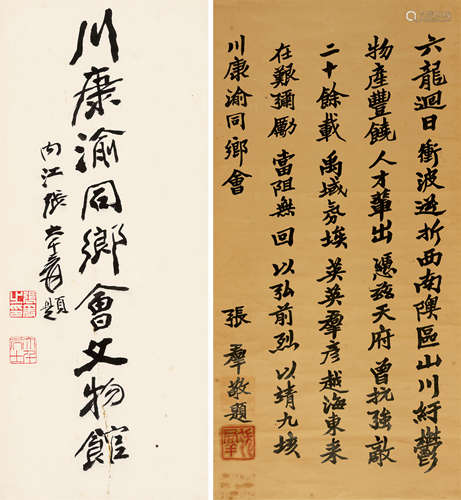 川康渝同鄉會文物館
内江張大千爰題
六龍迴日衝波逆折西南隩區山川紆鬱
物產豐饒人才輩出憑茲天府曾抗強敵
二十餘載禹域氛埃英英羣彥越海東來
在艱彌勵當阻無回以弘前烈以靖九垓
川康渝同鄉會
張羣敬題